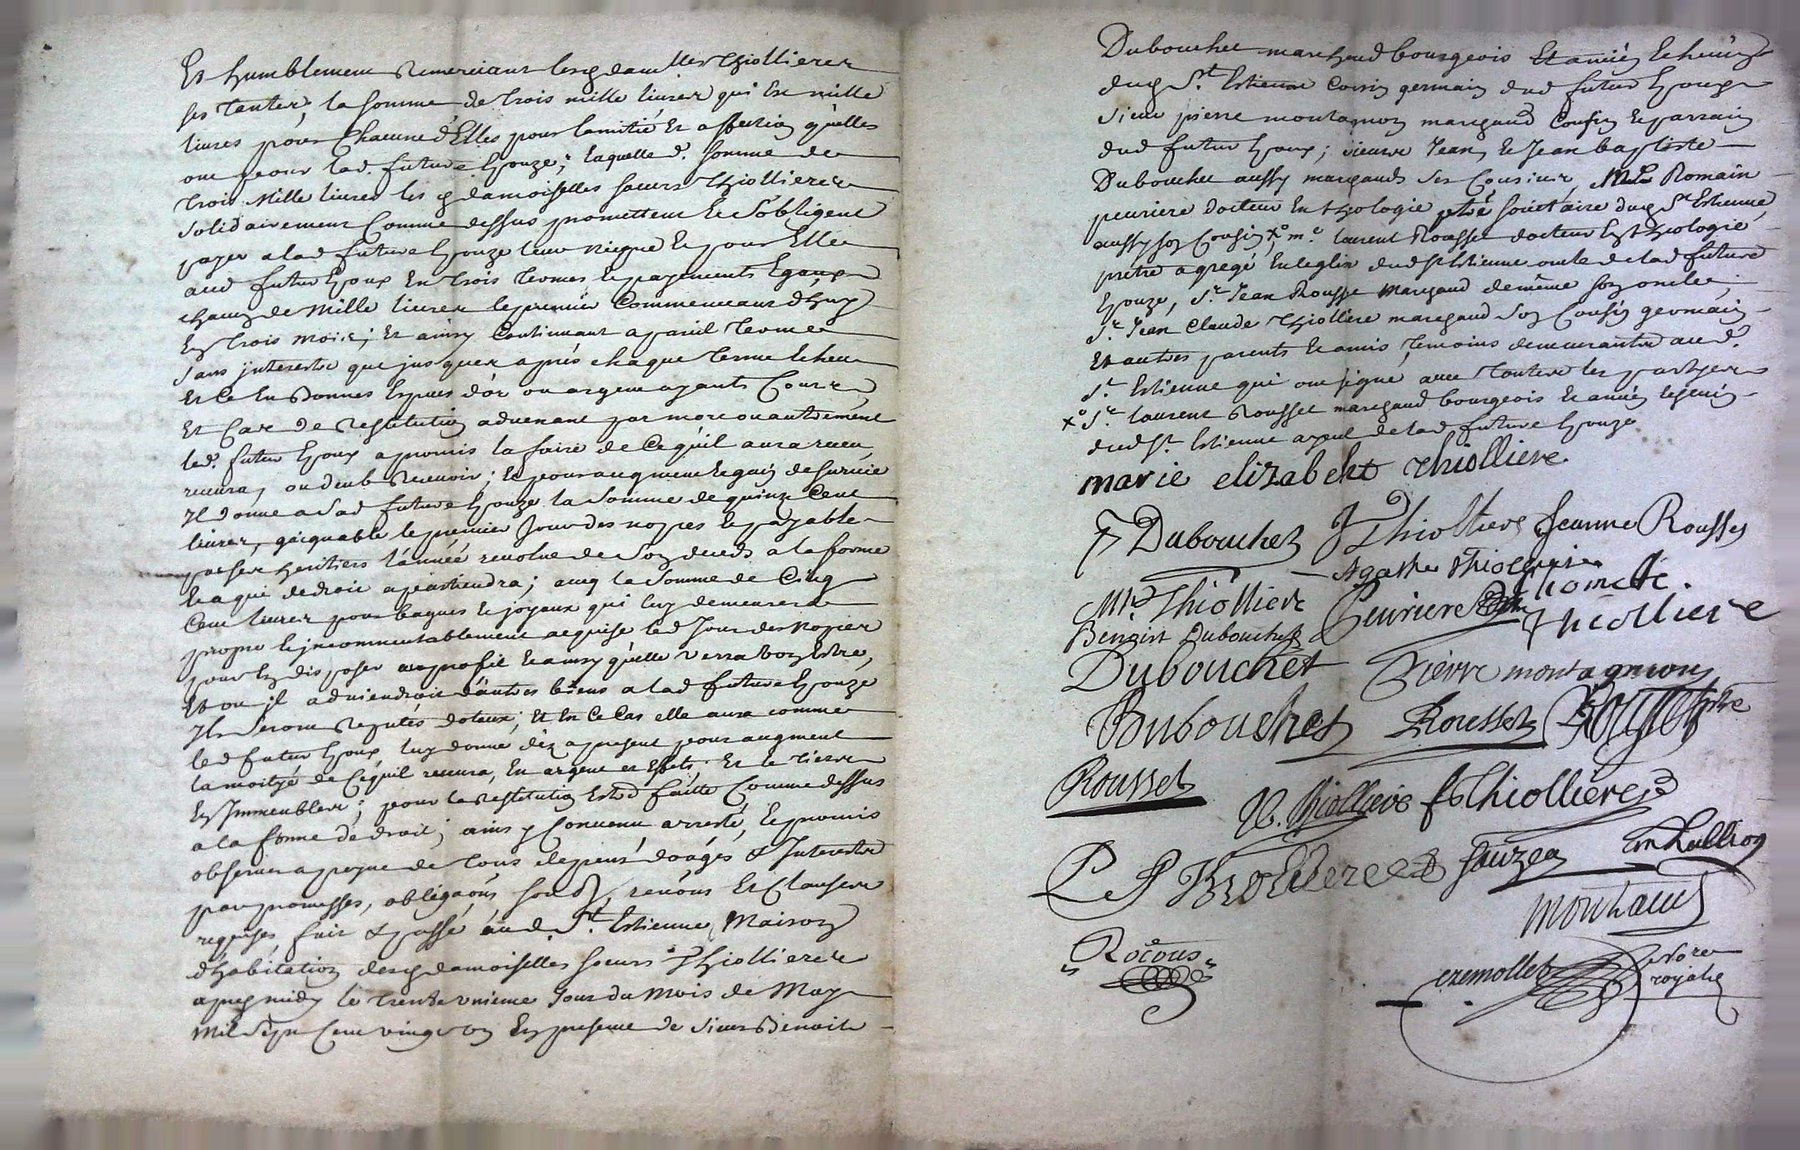 Et humblement Remerciant lesd damlles Thiollieres
ses Tantes, la somme de trois mille livres qui Est mille
livres pour Chacune d'Elles pour lamitié Et affection qu'elles
ont pour lad. future Epouze; laquelle d. somme de
trois Mille livres les d damoiselles soeurs Thiollieres
solidairement Comme dessus promettent Et S'obligent
payer a lad future Epouze leur niepce Et pour Elle
aud futur Epoux En trois Termes Et payements Egaux
chacun de Mille livres le premier Commenceant d'huy
En trois mois; Et ainsy Continuant a pareil Terme
sans interests que jusques aprés chaque Terme Echeu
Et Ce En bonnes Especes d'or ou argent ayants Cours,
Et Cas de Restitution advenant par mort ou autrement
led. futur Epoux a promis la faire de Ce qu'il aura receu,
recevra, ou deub Recevoir; Et pour augment Et gain de survie
Il donne a Sad future Epouze la Somme de quinze Cent
livres, gaignable le premier Jour des nopces Et payable
par ses heritiers l'année revolue de Son deceds a la forme
Et a qui de droit apartiendra; avec la Somme de Cinq
Cent livres pour bagues Et joyaux qui luy demeurera
propre Et incommutablement acquise led Jour des Nopces
pour En disposer au profit Et ainsy qu'elle verra bon Estre,
Et ou il adviendroit d'autres biens a lad future Epouze
Ils seront Reputés dotaux; Et En Ce Cas elle aura comme
led futur Epoux luy donne dez a present pour augment
la moitié de Ce quil recevra, En argent et Effets. Et le Tiers
En Immeubles; pour la Restitution Estre faitte Comme dessus
a la forme de droit; ainsy Convenu arresté, Et promis
observer a peyne de Tous depens domages & Interests
par promesses, obligaons renons Et Clauses
requises, fait & passé aud. St. Estienne, Maison
d'habitation desd damoiselles soeurs Thiollieres
apres midy le Trente unieme Jour du Mois de May
Mil Sept Cent vingt un En presence de sieur Benoit
Dubouchet marchand bourgeois Et antien Echevin
dud St. Estienne Cousin germain dud futur Epoux
sieur pierre montagnon marchand Cousin Et parrain
dud futur Epoux; sieurs Jean, Et Jean baptiste
Dubouchet aussy marchands ses Cousins, Mre Romain
peuriere docteur En theologie ptre societaire dud St Estienne
aussy son Cousin, xo me. laurent Rousset docteur En theologie
prêtre agregé En leglise dud St Estienne oncle de lad future
Epouze, Sr. Jean Rousset Marchand de même son oncle,
Sr. Jean Claude Thiolliere marchand son Cousin germain
Et autres parents Et amis, Temoins demeurants aud.
St. Estienne qui ont signé avec Toutes les parties
xo Sr laurent Rousset marchand bourgeois Et antien Echevin
dud St. Estienne ayeul de lad future Epouze
marie elizabeht thiolliere.
Dubouchet J Thiolliere Jeanne Rousset
Agathe thiolliere
Mie Thiolliere Peuriere
Benoist Dubouchet Thiolliere
Dubouchet Pierre montagnion
Dubouchet Rousset Rousset ptre
Rousset
Thiolliere Thiolliere
Thiolliere